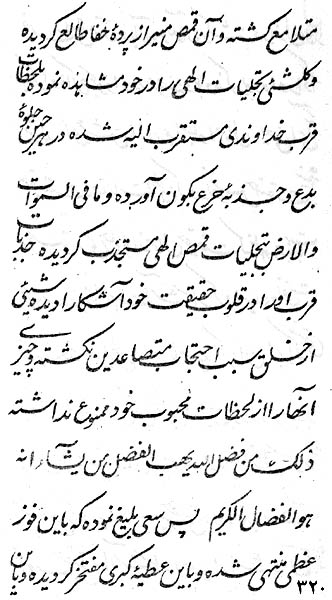 متلامع گشته و آن قمص منیر از پردهٔ خفا طالع گردیده
و کلشیٔ تجلیات الهی را در خود مشاهده نموده بلحظات
قرب خداوندی مستقرب الیه شده در هر حین جلوهٔ
بدع و جذبهٔ خرع بکون آورده و ما فی السموات
والارض بتجلیات قمص الهی مستجذب گردیده جذبات
قرب او را در قلوب حقیقت خود آشکارا دیده شیئی
از خلق سبب احتجاب متصاعدین نگشته و چیزی
آنها را از لحظات محبوب خود ممنوع نداشته
ذلک من فضل الله یهب الفضل من یشاء انه
هو الفضال الکریم پس سعی بلیغ نموده که باین فوز
عظمی منتهی شده و باین عطیهٔ کبری مفتخر گردیده و باین
۳۲۰